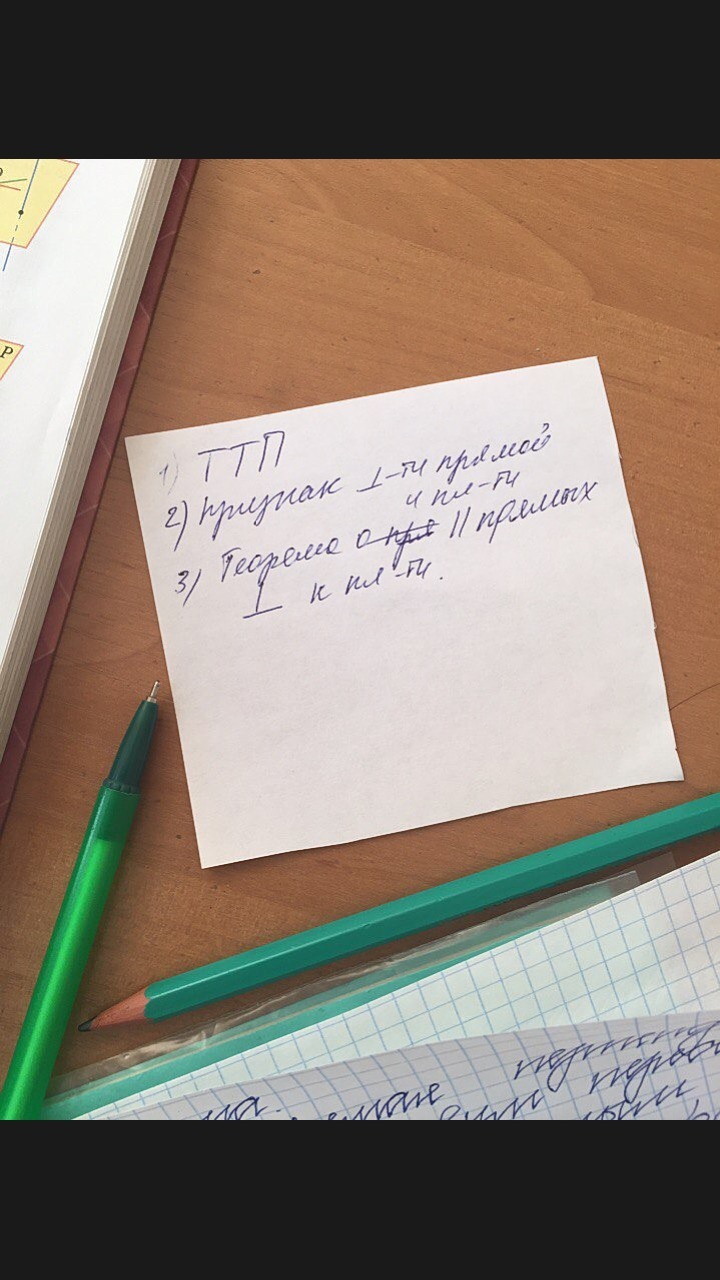 Р
1) ТТП
2) Признак ⊥-ти прямой
и пл-ти
3) Теорема о || прямых
⊥ к пл-ти.